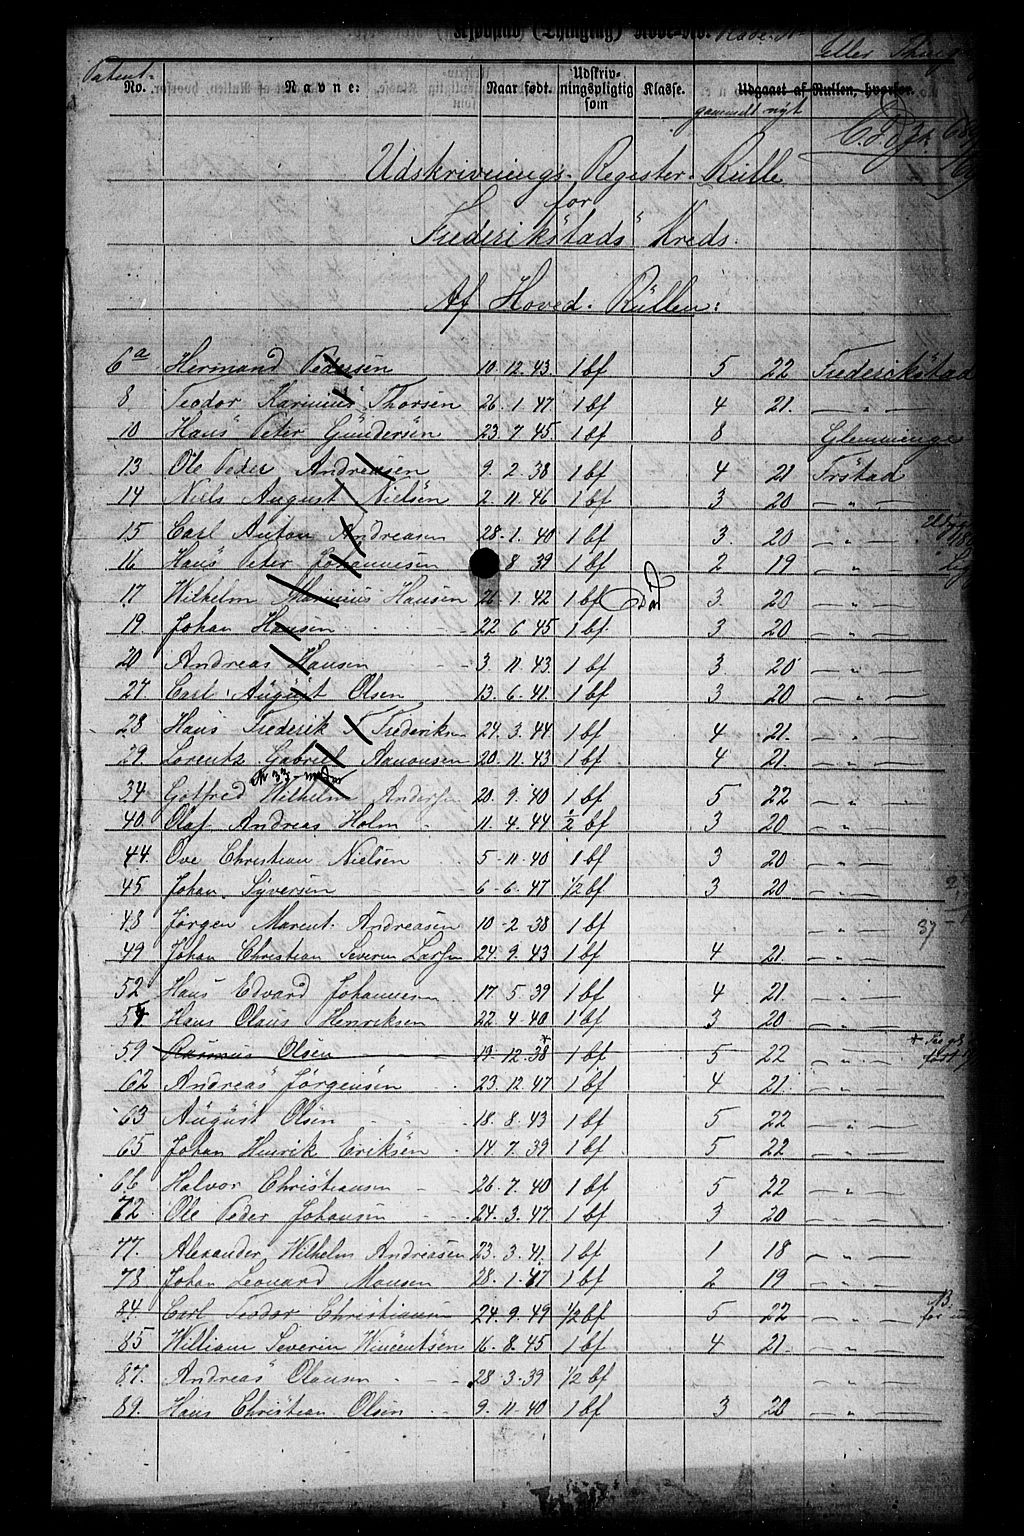 Kjøbstad (Thinglag) Rode-No. Rode. No
eller Thing
Patent-
No. Navne: Naar født. Udskriv-ningspligtig som Klasse. Udgaaet af Rullen, hvorfor.
gammelt nÿt
Udskrivnings-Register-Rulle
for
Frederikstads Kreds.
Af Hoved-Rullen:
6a Hermand Pedersen 10.12.43. 1 bf 5 22 Frederikstad
8 Teodor Karinius Thorsen 26.1.47 1 bf 4 21. — „ —
10 Hans Peter Gundersen 23.7.45 1 bf 8 Glemminge
13. Ole Peder Andreasen 9.2.38 1 bf 4 21 Frstad
14 Niels August Nielsen 2.11.46 1 bf 3 20 — „ —
15 Carl Anton Andreasen 28.1.40 1 bf 3. 20 — „ —
16 Hans Peter Johannesen 8 39 1 bf 2 19 — „ —
17 Wilhelm Marinius Hansen 21 1.42 1 bf Død 3. 20 — „ —
19. Johan Hansen 22 6 45 1 bf 3 20 — „ —
20 Andreas Hansen 3.11.43. 1 bf 3. 20 — „ —
27. Carl August Olsen 13.6.41. 1 bf 3 20 — „ —
28 Hans Frederik F. Frederiksen 24.3.44 1 bf 4 21. — „ —
29. Lorentz Gabriel Aanonsen 20.11.43 1 bf 4 21. — „ —
34. Gotfred Wilhelm Andersen 20.9.40 1. bf 5 22 — „ —
40. Olaf Andreas Holm 11.4.44 1/2 bf 3 20 — „ —
44. Ove Christian Nielsen 5-11-40 1 bf 3 20 — „ —
45 Johan Syversen 6-6.47 1/2 bf 3 20 — „ —
48 Jørgen Marent. Andreasen 10-2-38 1 bf — „ — 37
49 Johan Christian Severin Larsen 24.9.43 1 bf 4 21. — „ —
52. Hans Edvard Johannesen 17.5.39 1 bf 4 21. — „ —
54. Hans Olaus Henriksen 22.4.40 1 bf 3 20 — „ —
59 Rasmus Olsen 19.12.38* 1 bf 5 22 — „ —
62 Andreas Jørgensen 23.12.47 1 bf 4 21. — „ —
63 August Olsen 18.8.43 1 bf 5 22 — „ —
65 Johan Henrik Eriksen 14.7.39 1 bf 5 22 — „ —
66 Halvor Christiansen 26.7.40 1 bf 5 22 — „ —
72. Ole Peder Johansen 24.3.47 1 bf 3 20 — „ —
77. Alexander Wilhelm Andreasen 23.3.41. 1 bf 1 18 — „ —
78 Johan Leonard Monsen 28.1.47 1 bf 2 19 — „ —
84. Carl Teodor Christiansen 24.9.49 1/2 bf 5 22 — „ —
85 William Severin Wincentsen 16.8.45 1 bf 4 21. — „ —
87. Andreas Olausen 28.3.39 1/2 bf — „ —
89. Hans Christian Olsen 9.11.40 1 bf 3 20 — „ —